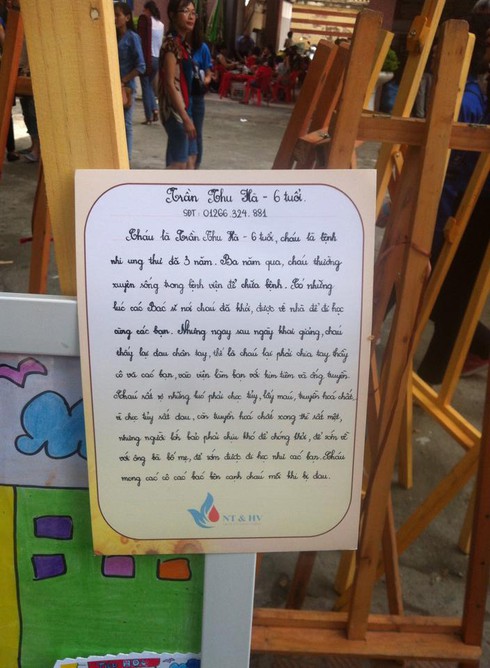 Trần Thu Hà - 6 tuổi.
SĐT: 01266.324.881
Cháu là Trần Thu Hà - 6 tuổi, cháu là bệnh
nhi ung thư đã 3 năm. Ba năm qua, cháu thường
xuyên sống trong bệnh viện để chữa bệnh. Có những
lúc các Bác sĩ nói cháu đã khỏi, được về nhà để đi học
cùng các bạn. Nhưng ngay sau ngày khai giảng, cháu
thấy lại đau chân tay, thế là cháu lại phải chia tay thầy
cô và các bạn, vào viện làm bạn với kim tiêm và ống truyền.
Cháu rất sợ những lúc phải chọc tủy, lấy máu, truyền hoá chất
vì chọc tủy rất đau, còn truyền hoá chất xong thì rất mệt,
nhưng người lớn bảo phải chịu khó để chóng khỏi, để sớm về
với ông bà bố mẹ, để sớm được đi học như các bạn. Cháu
mong các cô các bác bên cạnh cháu mỗi khi bị đau.
NT & HV